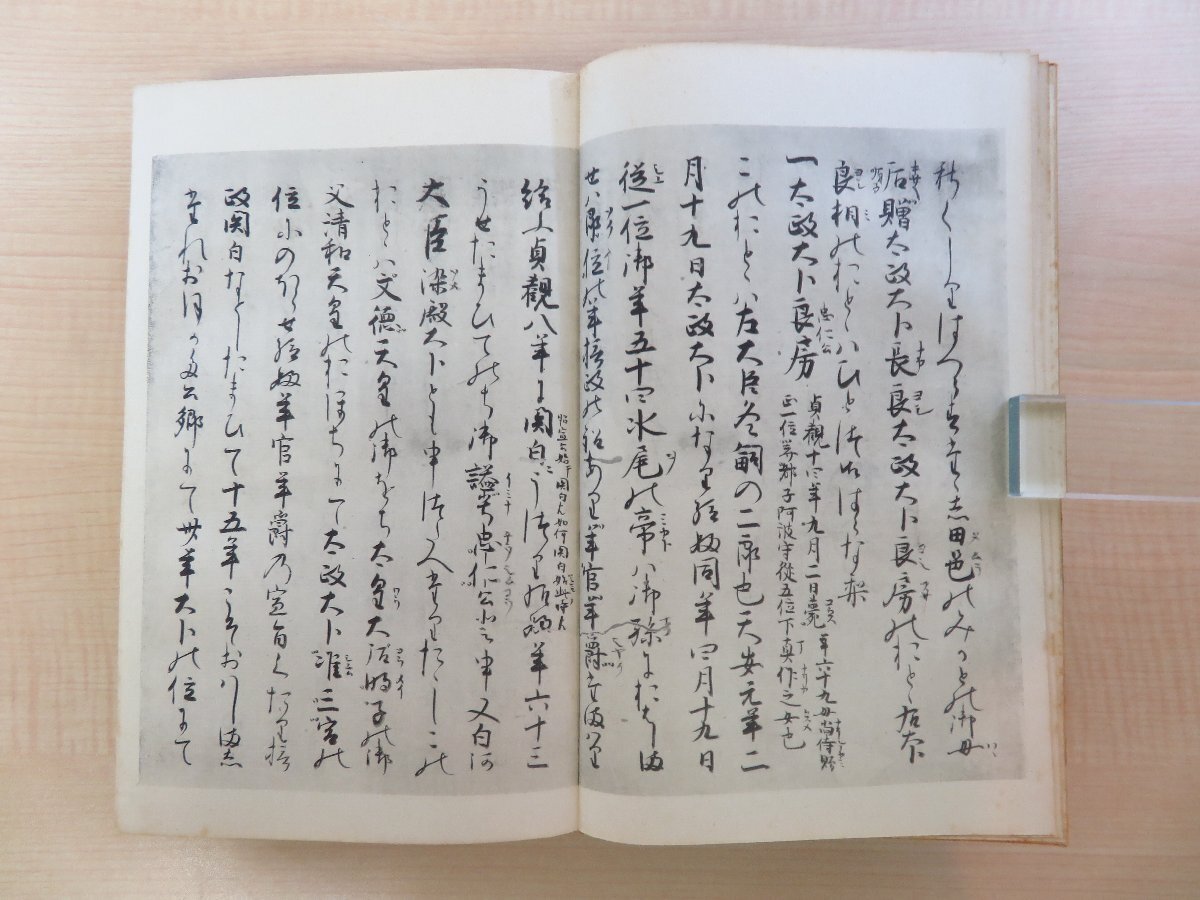 后贈太政大臣長良太政大臣良房のおとゝ右大臣
良相のおとゝハひとつ御はらなり
一太政大臣良房 忠仁公
貞観十四年九月二日薨 年六十九 母尚侍贈
正一位美都子阿波守従五位下真作之女也
このおとゝハ左大臣冬嗣の二郎也天安元年二
月十九日太政大臣になり給ふ同年四月十九日
従一位御年五十四水尾の帝ハ御孫におハしま
せハ即位の年摂政の詔あり年官年爵たまハり
給ふ貞観八年に関白にうつり給ふ年六十三
うせたまひてのち御諡号忠仁公と申又白河
大臣染殿大臣とも申つたへたりたゝしこの
おとゝハ文徳天皇の御をち太皇大后明子の御
父清和天皇のおほちにて太政大臣准三宮の
位にのほらせ給ふ年官年爵の宣旨くたり摂
政関白なとしたまひて十五年こそおハしまし
たれおほかた公卿にて卅年大臣の位にて